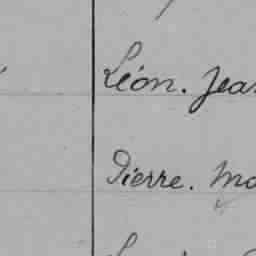 Léon. Jean
Pierre. Ma